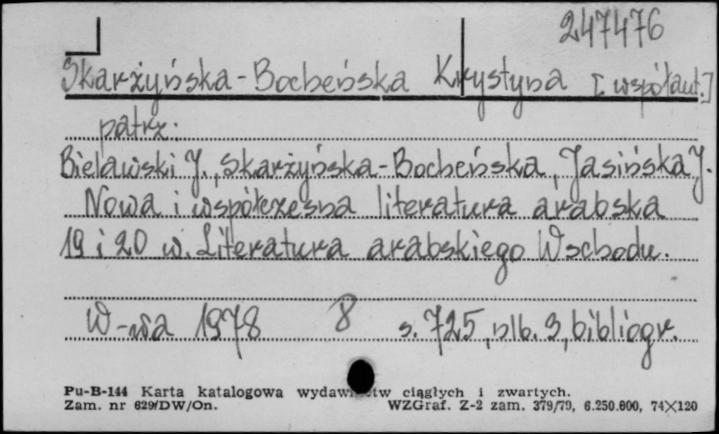 247476
Skarżyńska-Bocheńska Krystyna [współaut.]
patrz:
Bielawski J., Skarżyńska-Bocheńska, Jasińska J.
Nowa i współczesna literatura arabska
19 i 20 w. Literatura arabskiego Wschodu.
W-wa 1978 8 s. 725, nlb. 3, bibliogr.
Pu-B-144 Karta katalogowa wydawnictw ciągłych i zwartych.
Zam. nr 629/DW/On. WZGraf. Z-2 zam. 379/79, 6.250.000, 74×120